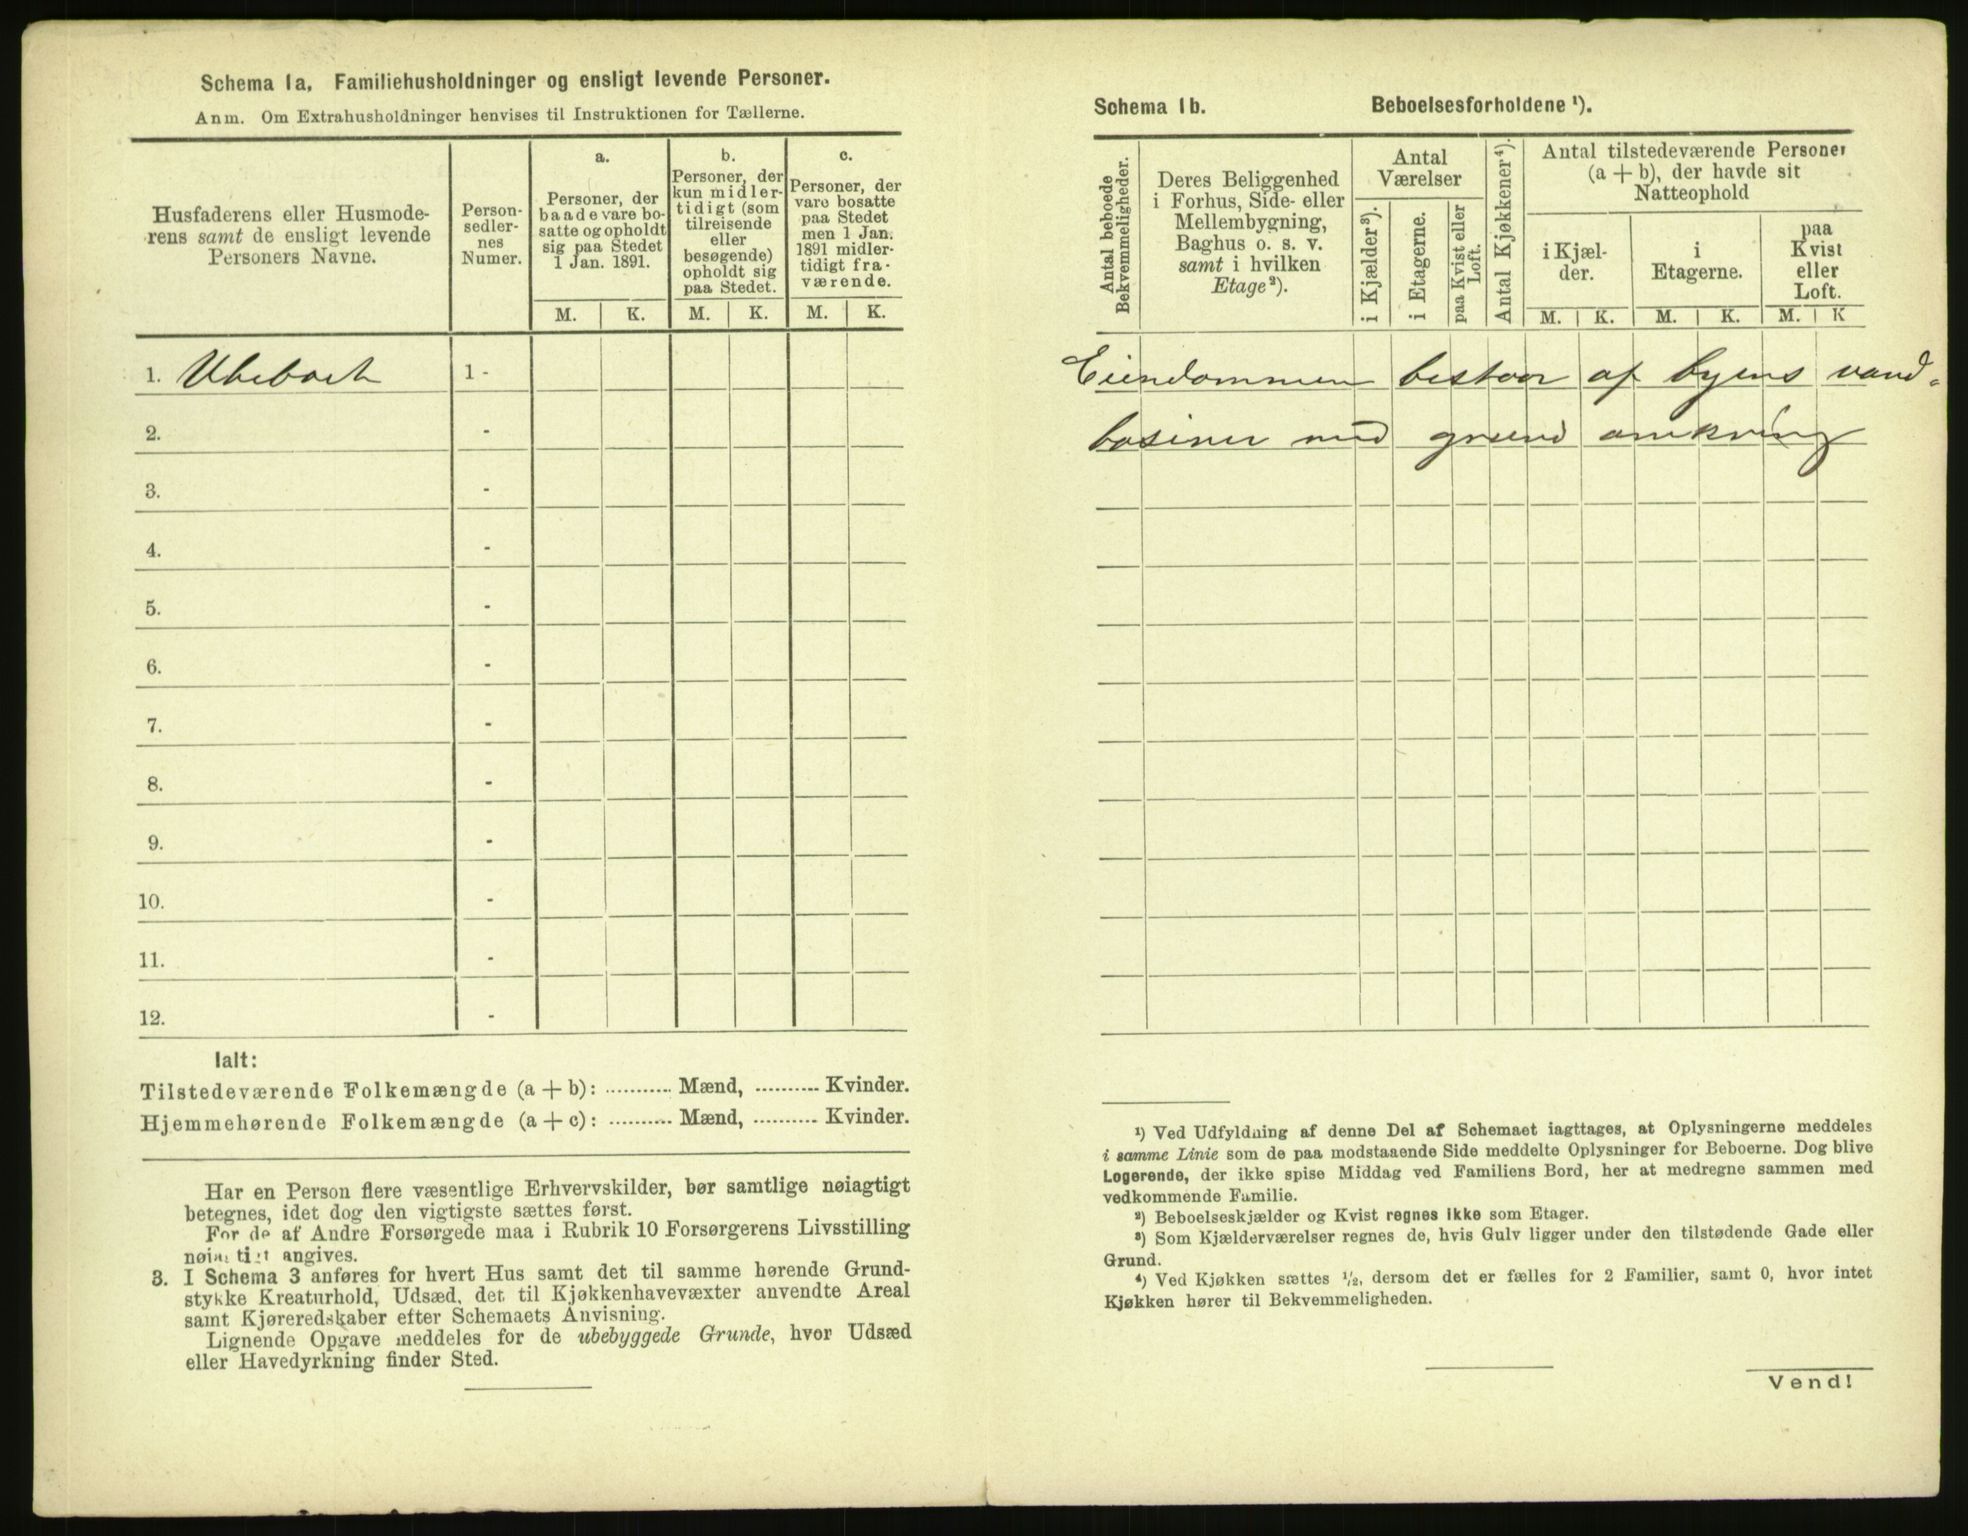 Schema 1a. Familiehusholdninger og ensligt levende Personer.
Anm. Om Extrahusholdninger henvises til Instruktionen for Tællerne.
Husfaderens eller Husmode-
rens samt de ensligt levende
Personers Navne.
Person-
sedler-
nes
Numer.
a.
Personer, der
baade vare bo-
satte og opholdt
sig paa Stedet
1 Jan. 1891.
b.
Personer, der
kun midler-
tidigt (som
tilreisende
eller
besøgende)
opholdt sig
paa Stedet.
c.
Personer, der
vare bosatte
paa Stedet
men 1 Jan.
1891 midler-
tidigt fra-
værende.
M. K. M. K. M. K.
1. Ubeboet 1 -
2. -
3. -
4. -
5. -
6. -
7. -
8. -
9. -
10. -
11. -
12. -
Ialt:
Tilstedeværende Folkemængde (a + b): ........... Mænd, .......... Kvinder.
Hjemmehørende Folkemængde (a + c): ........... Mænd, .......... Kvinder.
Har en Person flere væsentlige Erhvervskilder, bør samtlige nøiagtigt
betegnes, idet dog den vigtigste sættes først.
For de af Andre Forsørgede maa i Rubrik 10 Forsørgerens Livsstilling
nøiagtigt angives.
3. I Schema 3 anføres for hvert Hus samt det til samme hørende Grund-
stykke Kreaturhold, Udsæd, det til Kjøkkenhavevæxter anvendte Areal
samt Kjøreredskaber efter Schemaets Anvisning.
Lignende Opgave meddeles for de ubebyggede Grunde, hvor Udsæd
eller Havedyrkning finder Sted.
Schema 1b. Beboelsesforholdene ¹).
Antal beboede
Bekvemmeligheder.
Deres Beliggenhed
i Forhus, Side- eller
Mellembygning,
Baghus o. s. v.
samt i hvilken
Etage²).
Antal
Værelser
i Kjælder³).
i Etagerne.
paa Kvist eller
Loft.
Antal Kjøkkener⁴).
Antal tilstedeværende Personer
(a + b), der havde sit
Natteophold
i Kjæl-
der.
i
Etagerne.
paa
Kvist
eller
Loft.
M. K. M. K. M. K
Eiendommen bestaar af byens vand-
basiner med grund omkring
¹) Ved Udfyldning af denne Del af Schemaet iagttages, at Oplysningerne meddeles
i samme Linie som de paa modstaaende Side meddelte Oplysninger for Beboerne. Dog blive
Logerende, der ikke spise Middag ved Familiens Bord, her at medregne sammen med
vedkommende Familie.
²) Beboelseskjælder og Kvist regnes ikke som Etager.
³) Som Kjælderværelser regnes de, hvis Gulv ligger under den tilstødende Gade eller
Grund.
⁴) Ved Kjøkken sættes ½, dersom det er fælles for 2 Familier, samt 0, hvor intet
Kjøkken hører til Bekvemmeligheden.
Vend!